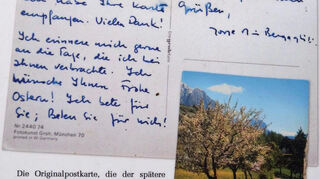 habe Ihre Karte
empfangen. Vielen Dank!
Ich erinnere mich gerne
an die Tage, die ich bei
Ihnen verbrachte. Ich
wünsche Ihnen Frohe
Ostern! Ich bete für
Sie; Beten Sie für mich!
Grüßen,
Jorge M. Bergoglio
Nr. 2440 74
Fotokunst Groh, München 70
printed in W. Germany
Die Originalpostkarte, die der spätere